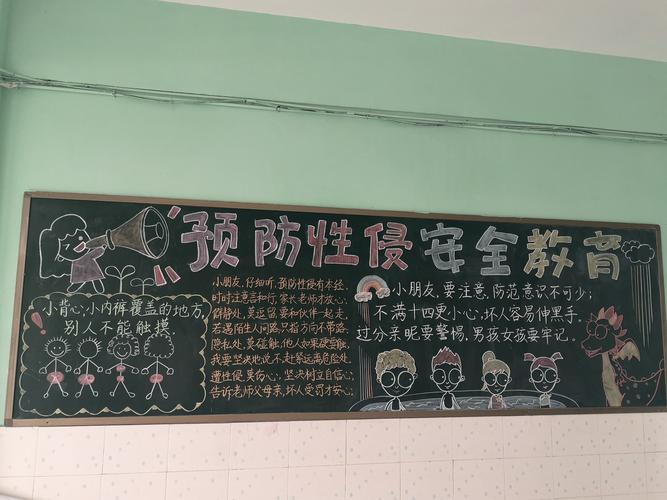 预防性侵安全教育
小背心、小内裤覆盖的地方,
别人不能触摸
小朋友,仔细听,预防性侵有本经,
时时注意言和行,家长老师才放心;
僻静处,莫逗留,要和伙伴一起走,
若遇陌生人问路,只指方向不带路,
隐私处,莫碰触,他人如果硬要触,
我要坚决地说不,赶紧远离危险处,
遭性侵,莫伤心,坚决树立自信心;
告诉老师父母亲,坏人受罚才安心;
小朋友,要注意,防范意识不可少;
不满十四更小心,坏人容易伸黑手,
过分亲昵要警惕,男孩女孩要牢记。